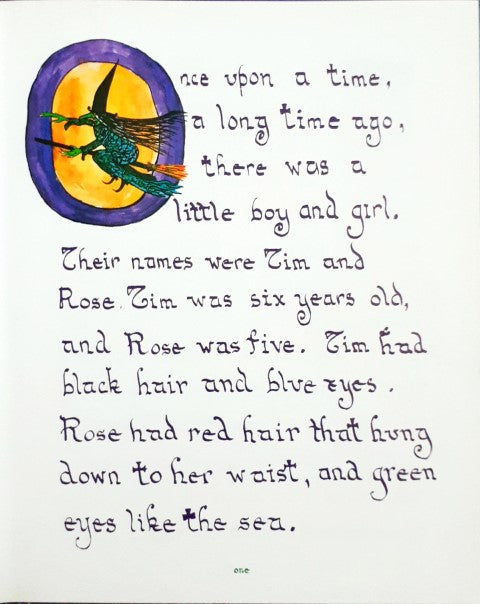 Once upon a time,
a long time ago,
there was a
little boy and girl.
Their names were Tim and
Rose. Tim was six years old,
and Rose was five. Tim had
black hair and blue eyes.
Rose had red hair that hung
down to her waist, and green
eyes like the sea.
one